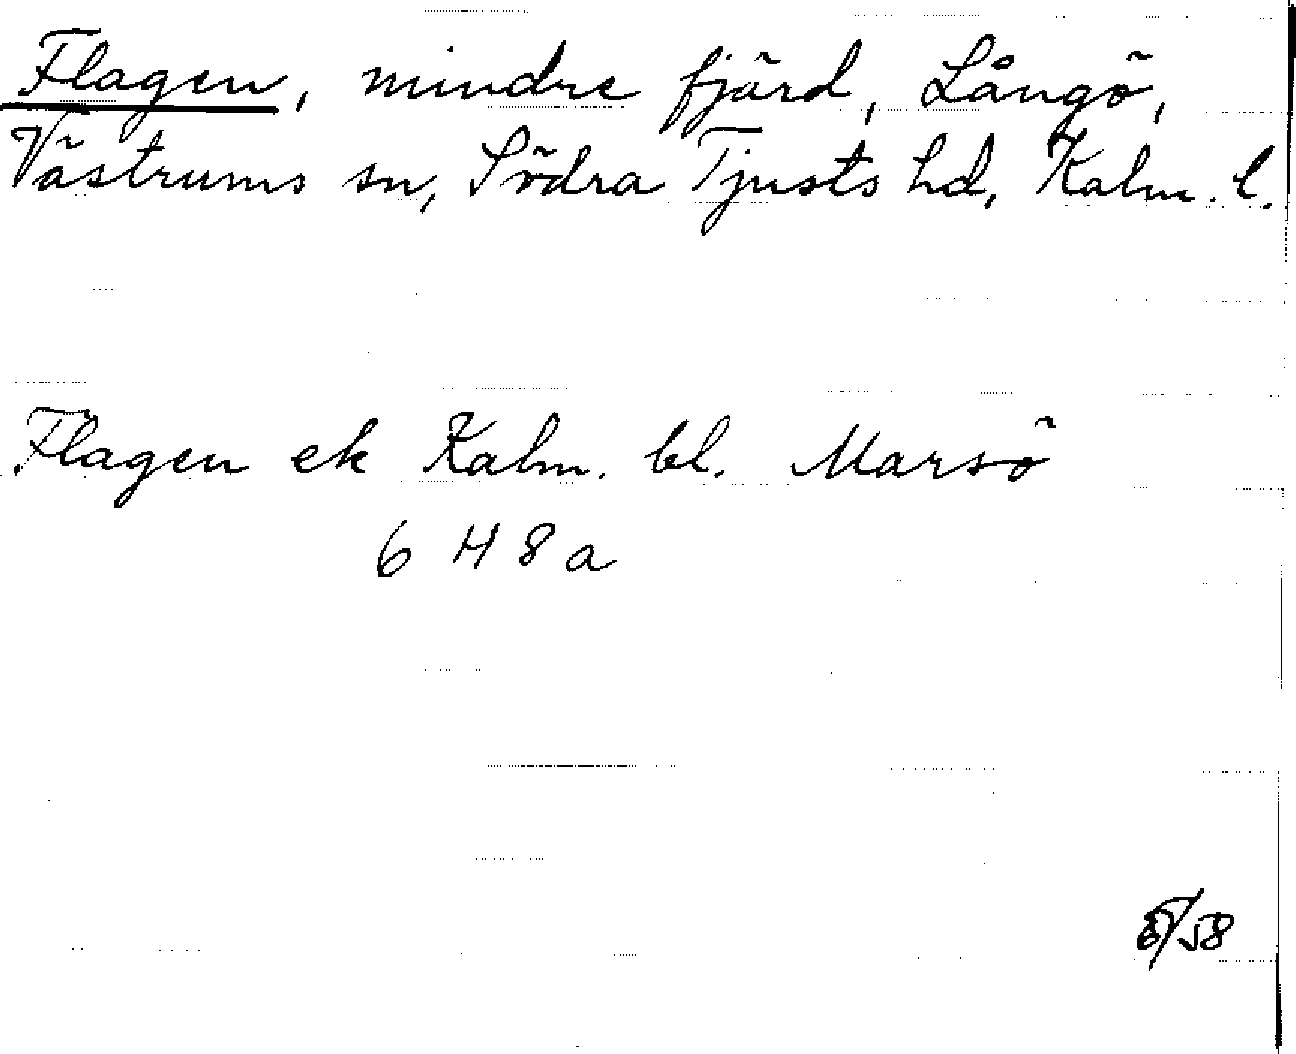 Flagen, mindre fjärd, Långö,
Västrums sn, Södra Tjusts hd, Kalm. l.
Flagen ek Kalm. bl. Marsö
6 H 8 a